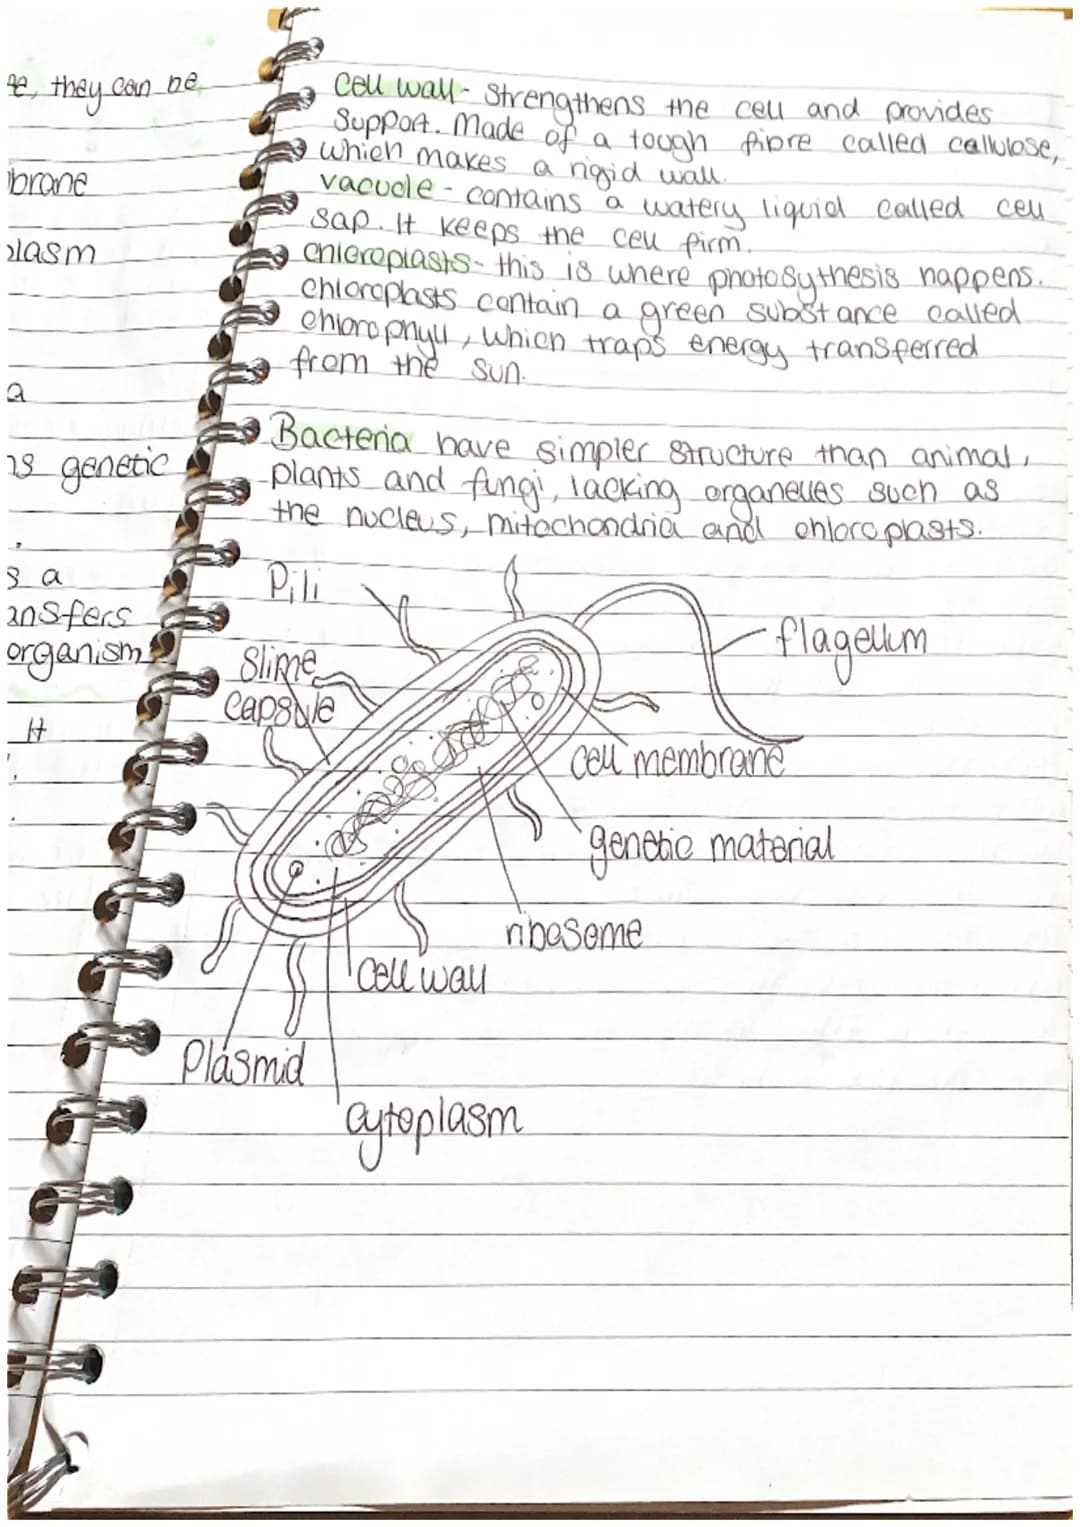 e, they can be
brane
plasm
a
ns genetic
s a
ansfers
organism
It
Cell wall - strengthens the cell and provides
Support. Made of a tough fibre called cellulose,
which makes a rigid wall.
vacuole - contains a watery liquid called cell
sap. It keeps the cell firm.
chloroplasts - this is where photosythesis happens.
chloroplasts contain a green substance called
chlorophyll, which traps energy transferred
from the sun.
Bacteria have simpler structure than animal,
plants and fungi, lacking organelles such as
the nucleus, mitochondria and chloroplasts.
Pili
flagellum
Slime
capsule
cell membrane
genetic material
ribosome
cell wall
Plasmid
cytoplasm